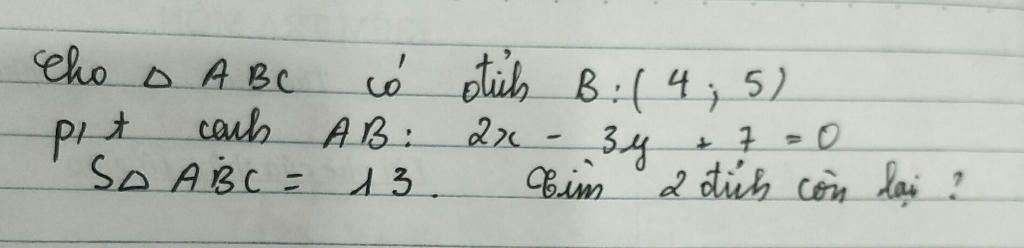 Cho Δ ABC có đỉnh B:( 4 ; 5)
p/t cạnh AB: 2x - 3y + 7 = 0
SΔ ABC = 13. Tìm 2 đỉnh còn lại ?